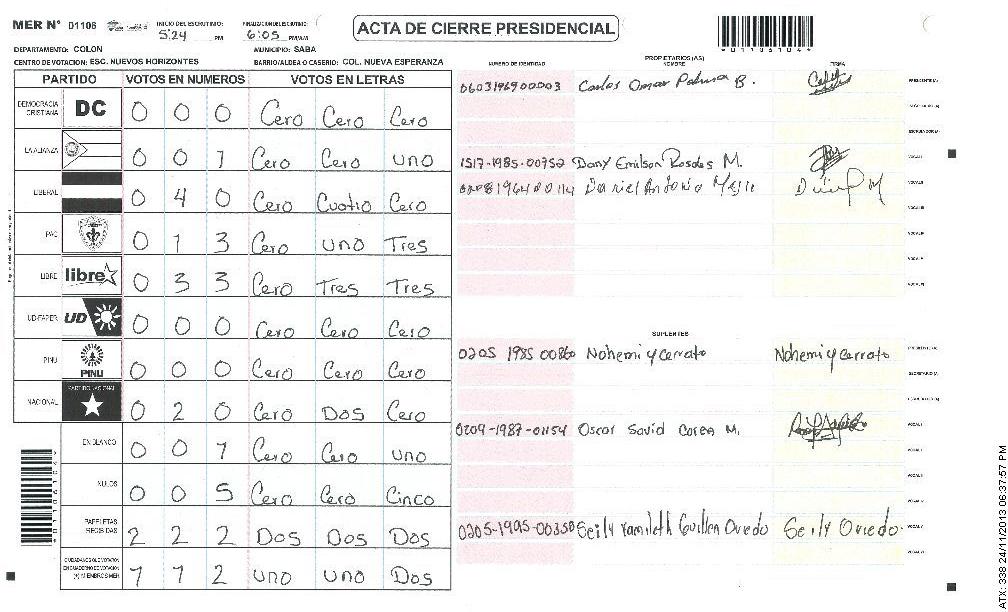 MER N° 01106 INICIO DEL ESCRUTINIO: 5:24 PM FINALIZACION ESCRUTINIO: 6:05 PM/AM ACTA DE CIERRE PRESIDENCIAL
DEPARTAMENTO: COLON MUNICIPIO: SABA
CENTRO DE VOTACION: ESC. NUEVOS HORIZONTES BARRIO/ALDEA O CASERIO: COL. NUEVA ESPERANZA
PARTIDO VOTOS EN NUMEROS VOTOS EN LETRAS
DEMOCRACIA CRISTIANA DC 0 0 0 Cero Cero Cero
LA ALIANZA 0 0 1 Cero Cero uno
LIBERAL 0 4 0 Cero Cuatro Cero
PAC 0 1 3 Cero uno Tres
LIBRE libre 0 3 3 Cero Tres Tres
UD-FAPER UD 0 0 0 Cero Cero Cero
PINU PINU 0 0 0 Cero Cero Cero
NACIONAL PARTIDO NACIONAL 0 2 0 Cero Dos Cero
EN BLANCO 0 0 1 Cero Cero uno
NULOS 0 0 5 Cero Cero Cinco
PAPELETAS RECIBIDAS 2 2 2 Dos Dos Dos
1 1 2 uno uno Dos
PROPIETARIOS (AS)
NUMERO DE IDENTIDAD NOMBRE FIRMA
0603196900003 Carlos Omar Palma B. PRESIDENTE (A)
SECRETARIO (A)
ESCRUTADOR (A)
1517-1985-00752 Dany Emilson Rosales M. VOCAL I
Daniel Antonio VOCAL II
VOCAL III
VOCAL IV
VOCAL V
VOCAL VI
SUPLENTES
0205 1985 00860 Nohemi y cerrato Nohemi y cerrato PRESIDENTE (A)
SECRETARIO (A)
ESCRUTADOR (A)
0209-1987-01154 Oscar David Corea M. VOCAL I
VOCAL II
VOCAL III
VOCAL IV
0205-1995-00350 Seily Yamileth Guillen Oviedo Seily Oviedo. VOCAL V
VOCAL VI
ATX: 338 24/11/2013 06:37:57 PM